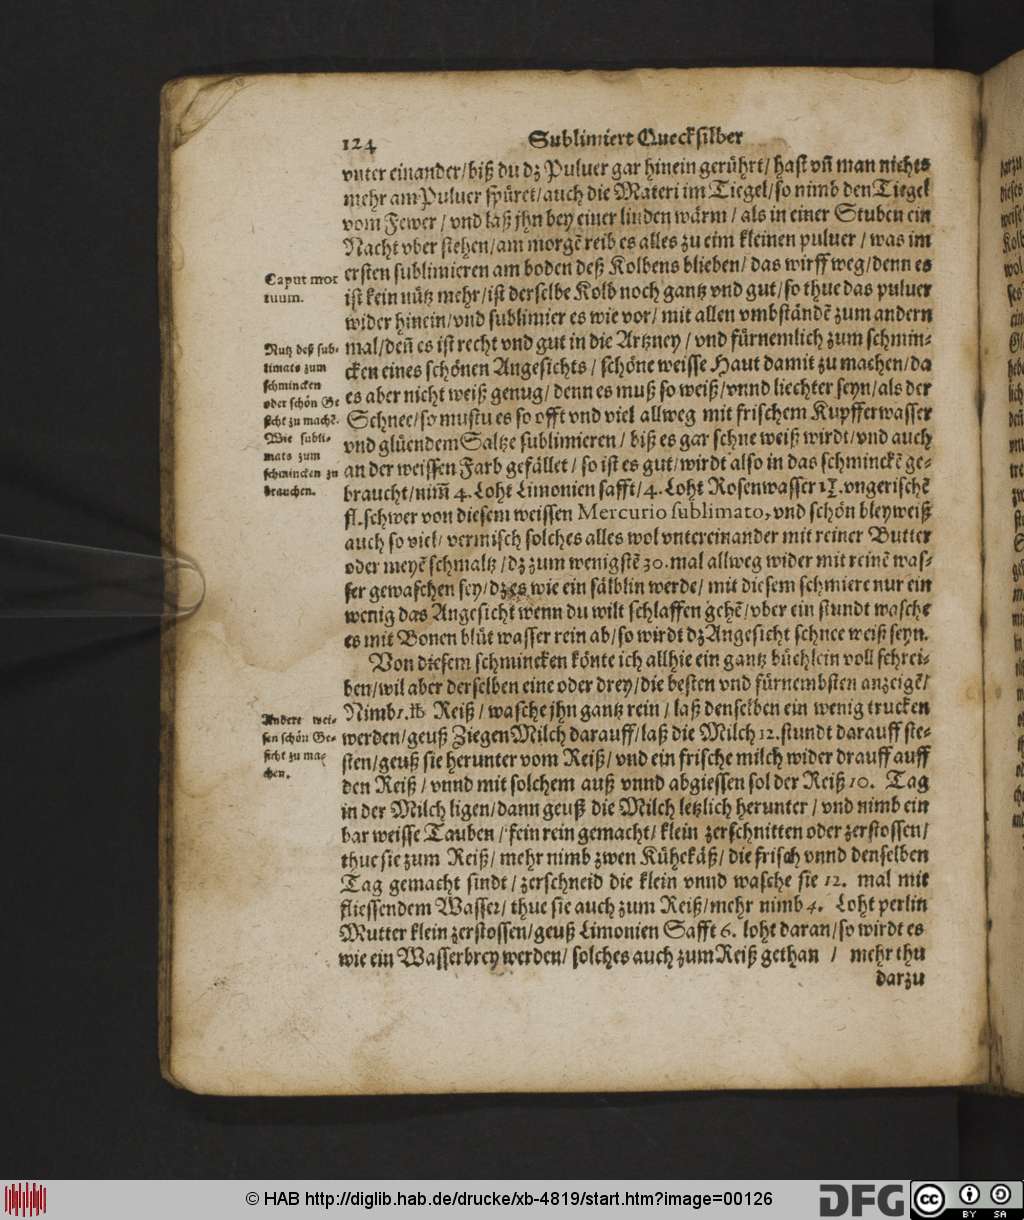 124 Sublimiert Quecksilber
vnter einander/biß du dz Puluer gar hinein gerührt/ hast vñ man nichts
mehr am Puluer spüret/auch die Materi im Tiegel/so nimb den Tiegel
vom Fewer/ vnd laß jhn bey einer linden wärm/ als in einer Stuben ein
Nacht vber stehen/am morgẽ reib es alles zu eim kleinen puluer/ was im
ersten sublimieren am boden deß Kolbens blieben/ das wirff weg/denn es
ist kein nütz mehr/ist derselbe Kolb noch gantz vnd gut/so thue das puluer
wider hinein/vnd sublimier es wie vor/ mit allen vmbständẽ zum andern
mal/deñ es ist recht vnd gut in die Artzney/ vnd fürnemlich zum schmin-
cken eines schönen Angesichts/ schöne weisse Haut damit zu machen/da
es aber nicht weiß genug/ denn es muß so weiß/vnnd liechter seyn/als der
Schnee/so mustu es so offt vnd viel allweg mit frischem Kupfferwasser
vnd glüendem Saltze sublimieren/ biß es gar schne weiß wirdt/vnd auch
an der weissen Farb gefället/ so ist es gut/wirdt also in das schminckẽ ge-
braucht/nim̃ 4. Loht Limonien safft/4. Loht Rosenwasser vngerischẽ
fl. schwer von diesem weissen Mercurio sublimato, vnd schön bleyweiß
auch so viel/ vermisch solches alles wol vntereinander mit reiner Butter
oder meyẽ schmaltz/dz zum wenigstẽ 30. mal allweg wider mit reinẽ was-
ser gewaschen sey/dz es wie ein sälblin werde/ mit diesem schmiere nur ein
wenig das Angesicht wenn du wilt schlaffen gehẽ/vber ein stundt wasche
es mit Bonen blüt wasser rein ab/so wirdt dz Angesicht schnee weiß seyn.
Von diesem schmincken könte ich allhie ein gantz büchlein voll schrei-
ben/wil aber derselben eine oder drey/die besten vnd fürnembsten anzeigẽ/
Nimb 1. ℔ Reiß/ wasche jhn gantz rein/ laß denselben ein wenig trucken
werden/geuß Ziegen Milch darauff/laß die Milch 12. stundt darauff ste-
sten/geuß sie herunter vom Reiß/ vnd ein frische milch wider drauff auff
den Reiß/ vnnd mit solchem auß vnnd abgiessen sol der Reiß 10. Tag
in der Milch ligen/dann geuß die Milch letzlich herunter/ vnd nimb ein
bar weisse Tauben/ fein rein gemacht/ klein zerschnitten oder zerstossen/
thue sie zum Reiß/ mehr nimb zwen Kühekäß/ die frisch vnnd denselben
Tag gemacht sindt/ zerschneid die klein vnnd wasche sie 12. mal mit
fliessendem Wasser/ thue sie auch zum Reiß/mehr nimb 4. Loht perlin
Mutter klein zerstossen/geuß Limonien Safft 6. loht daran/so wirdt es
wie ein Wasserbrey werden/ solches auch zum Reiß gethan/ mehr thu
darzu
Caput mor
tuum.
Nutz deß sub-
limats zum
schmincken
oder schön Ge
sicht zu machẽ.
Wie subli-
mats zum
schmincken zu
brauchen.
Andere wei-
sen schön Ge-
sicht zu ma-
chen.
© HAB http://diglib.hab.de/drucke/xb-4819/start.htm?image=00126
DFG
cc BY SA